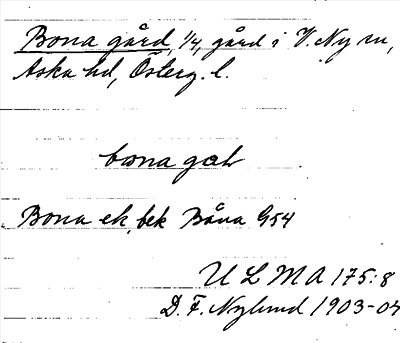 Bona gård, 1/4, gård i V. Ny sn,
Aska hd, Österg. l.
bona gal
Bona ek, bek Båna G54
ULMA 175:8
D. F. Nylund 1903-04